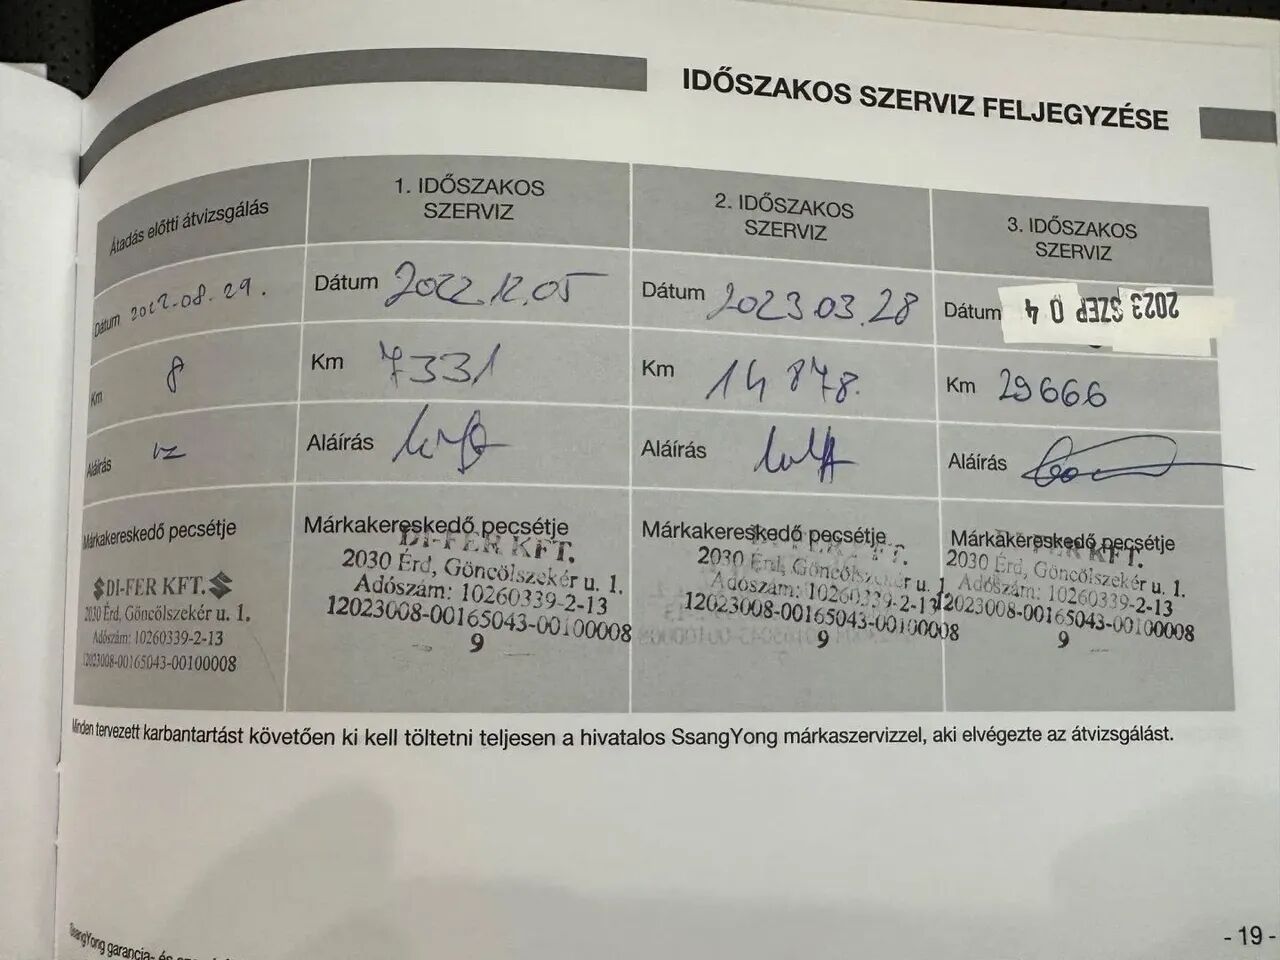 IDŐSZAKOS SZERVIZ FELJEGYZÉSE
Átadás előtti átvizsgálás
Dátum 2022.08.29.
Km 8
Aláírás
Márkakereskedő pecsétje
DI-FER KFT.
2030 Érd, Göncölszekér u. 1.
Adószám: 10260339-2-13
12023008-00165043-00100008
1. IDŐSZAKOS
SZERVIZ
Dátum 2022.12.05
Km 7331
Aláírás
Márkakereskedő pecsétje
DI-FER KFT.
2030 Érd, Göncölszekér u. 1.
Adószám: 10260339-2-13
12023008-00165043-00100008
9
2. IDŐSZAKOS
SZERVIZ
Dátum 2023.03.28
Km 14878.
Aláírás
Márkakereskedő pecsétje
DI-FER KFT.
2030 Érd, Göncölszekér u. 1.
Adószám: 10260339-2-13
12023008-00165043-00100008
9
3. IDŐSZAKOS
SZERVIZ
Dátum 2023 SZEP 04
Km 29666
Aláírás
Márkakereskedő pecsétje
DI-FER KFT.
2030 Érd, Göncölszekér u. 1.
Adószám: 10260339-2-13
12023008-00165043-00100008
9
Minden tervezett karbantartást követően ki kell töltetni teljesen a hivatalos SsangYong márkaszervizzel, aki elvégezte az átvizsgálást.
SsangYong garancia- és
- 19 -